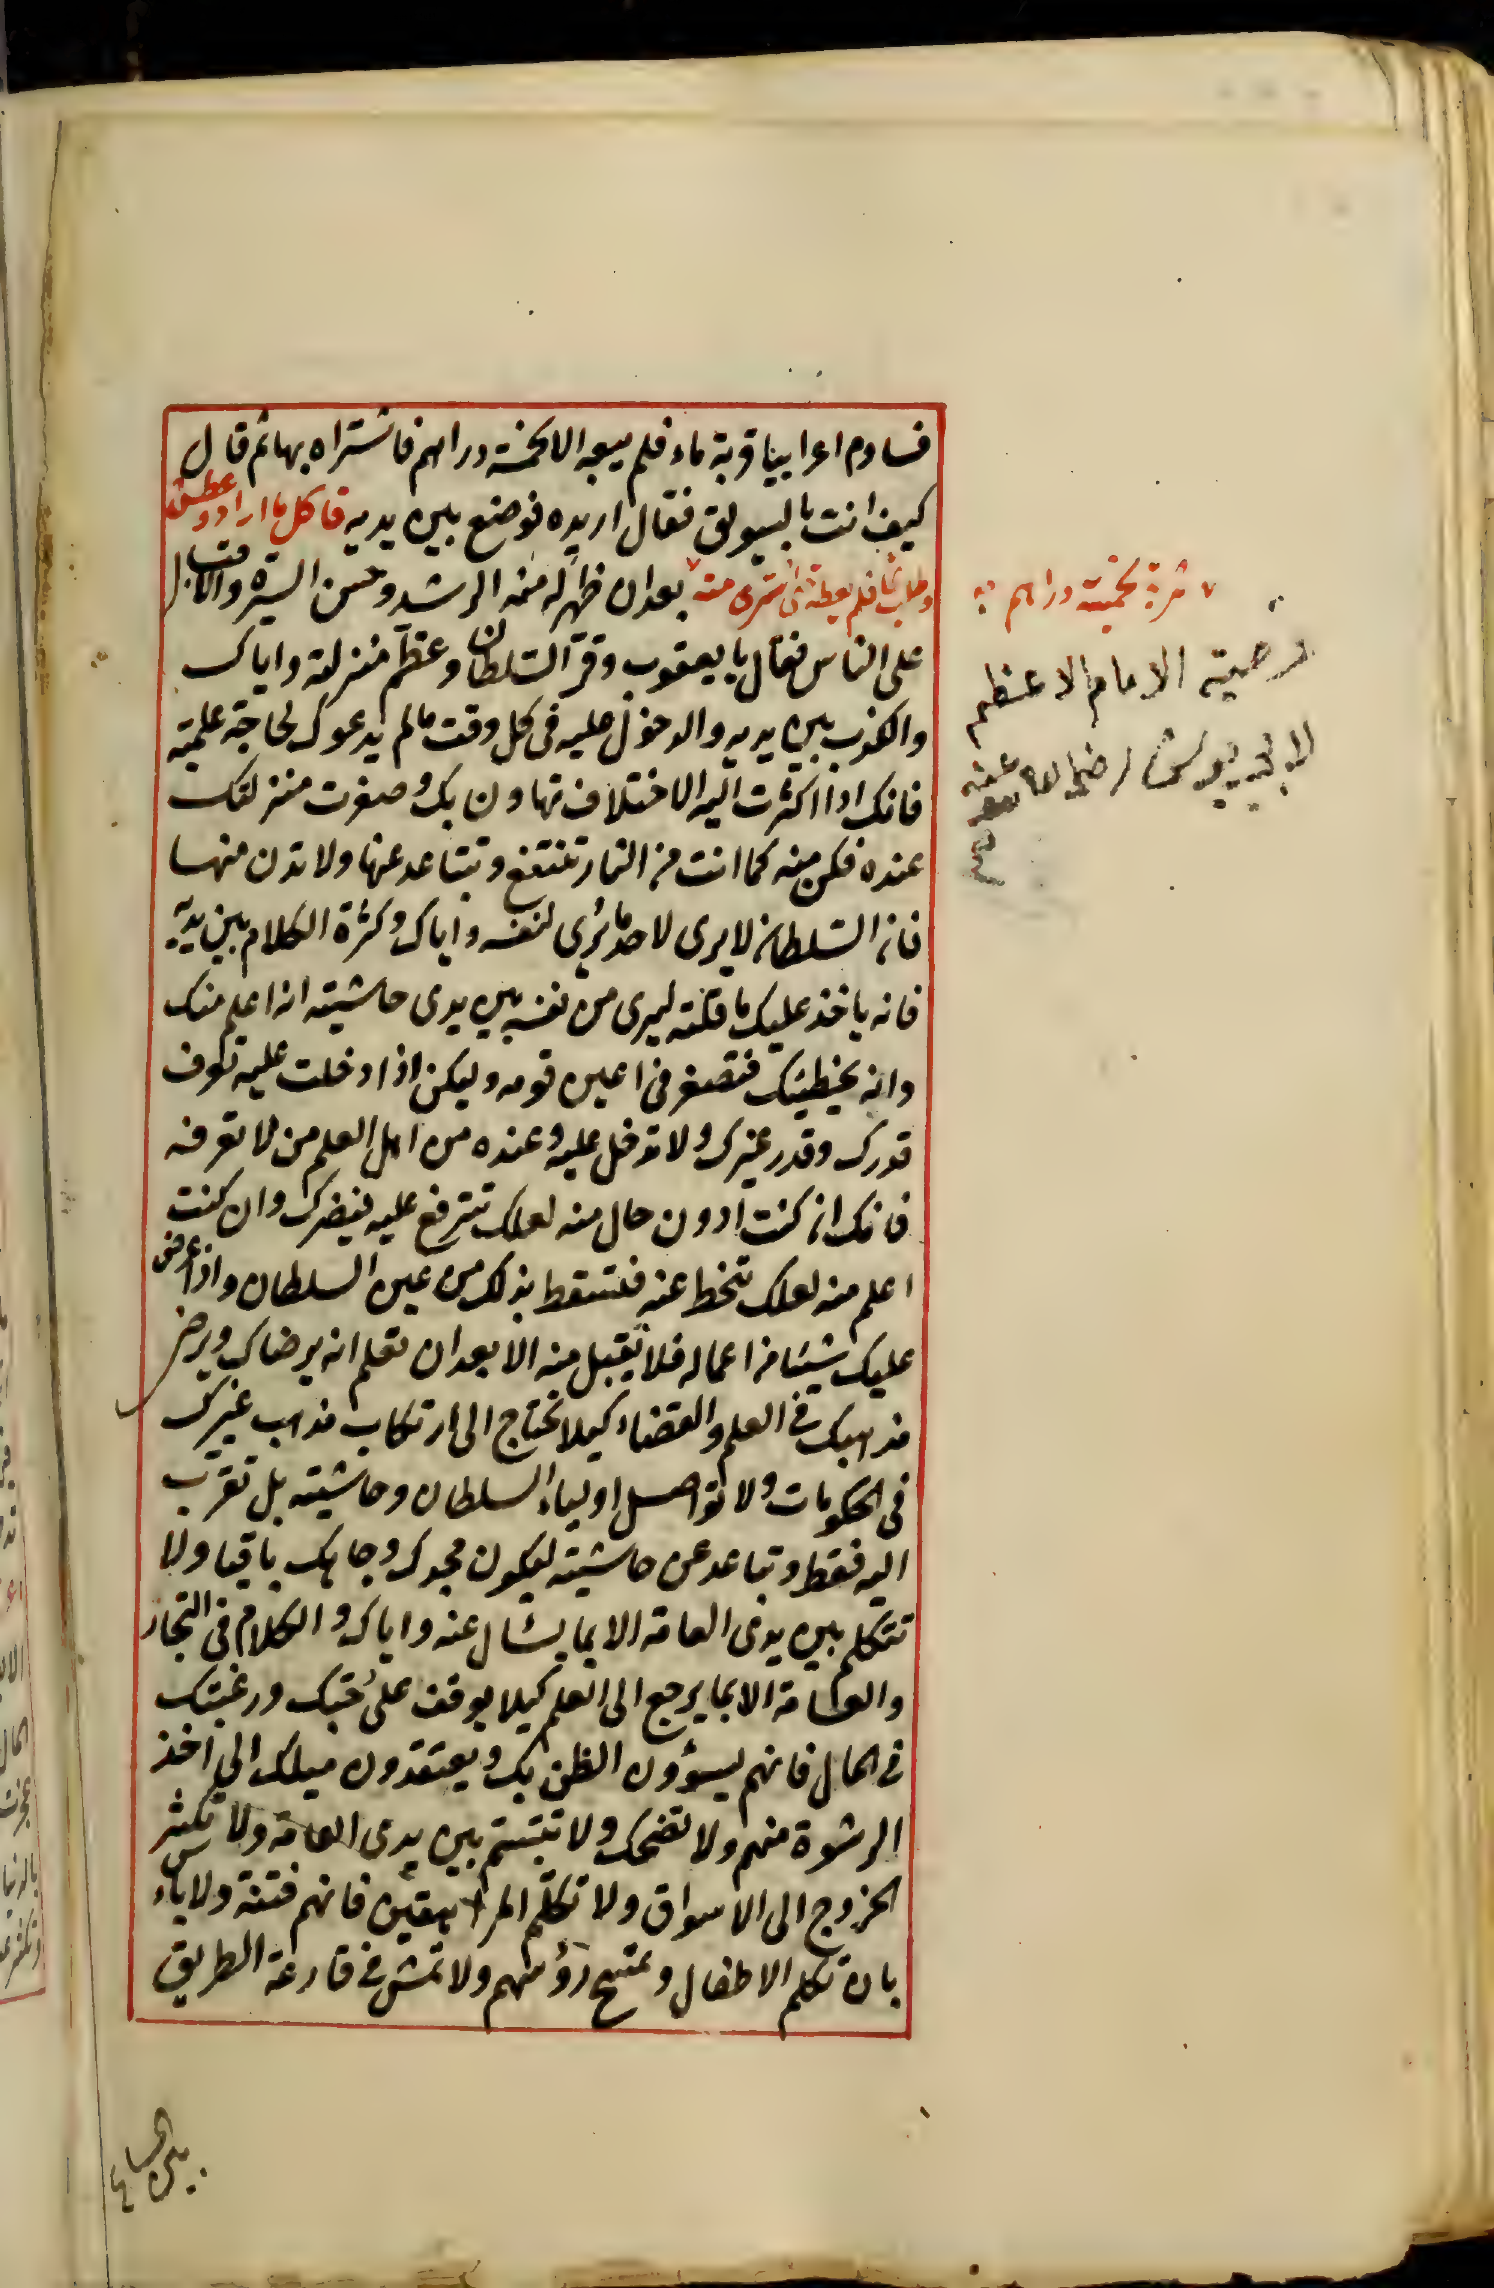 فساوم اعرابيا قربة ماء فلم يبعه الا بخمسة دراهم فاشتراه بها ثم قال
كيف انت بالسويق فقال اريده فوضع بين يديه فاكل ما اراد وعطش
وطلب الماء فلم يعطه حتى اشترى منه بعد ان ظهر له منه الرشد وحسن السيرة والاقبال
على الناس فقال يا يعقوب وقر السلطان وعظم منزلته واياك
والكذب بين يديه والدخول عليه فى كل وقت مالم يدعوك لحاجة علمية
فانك اذا اكثرت اليه الاختلاف تهاون بك وصغرت منزلتك
عنده فكن منه كما انت من النار تنتفع وتتباعد عنها ولا تدن منها
فان السلطان لا يرى لاحد ما يرى لنفسه واياك وكثرة الكلام بين يديه
فانه ياخذ عليك ما قلته ليرى من نفسه بين يدى حاشيته انه اعلم منك
وانه يخطيئك فتصغر فى اعين قومه وليكن اذا دخلت عليه تعرف
قدرك وقدر غيرك ولا تدخل عليه وعنده من اهل العلم من لا تعرفه
فانك ان كنت ادون حال منه لعلك تترفع عليه فيضرك وان كنت
اعلم منه لعلك تنحط عنه فتسقط بذلك من عين السلطان واذا عرض
عليك شيئا من اعماله فلا تقبل منه الا بعد ان تعلم انه يرضاك ويرضى
مذهبك فى العلم والقضاء كيلا تحتاج الى ارتكاب مذهب غيرك
فى الحكومات ولا تواصل اولياء السلطان وحاشيته بل تقرب
اليه فقط وتباعد عن حاشيته ليكون مجدك وجاهك باقيا ولا
تتكلم بين يدى العامة الا بما يسأل عنه واياك والكلام فى التجار
والعامة الا بما يرجع الى العلم كيلا يوقف على حبك ورغبتك
فى المال فانهم يسؤون الظن بك ويعتقدون ميلك الى اخذ
الرشوة منهم ولا تضحك ولا تبتسم بين يدى العامة ولا تكثر
الخروج الى الاسواق ولا تكلم المراهقين فانهم فتنة ولا باس
بان تكلم الاطفال وتمسح رؤسهم ولا تمش فى قارعة الطريق
شربة بخمسة دراهم
وصية الامام الاعظم
لابى يوسف رضى الله عنه